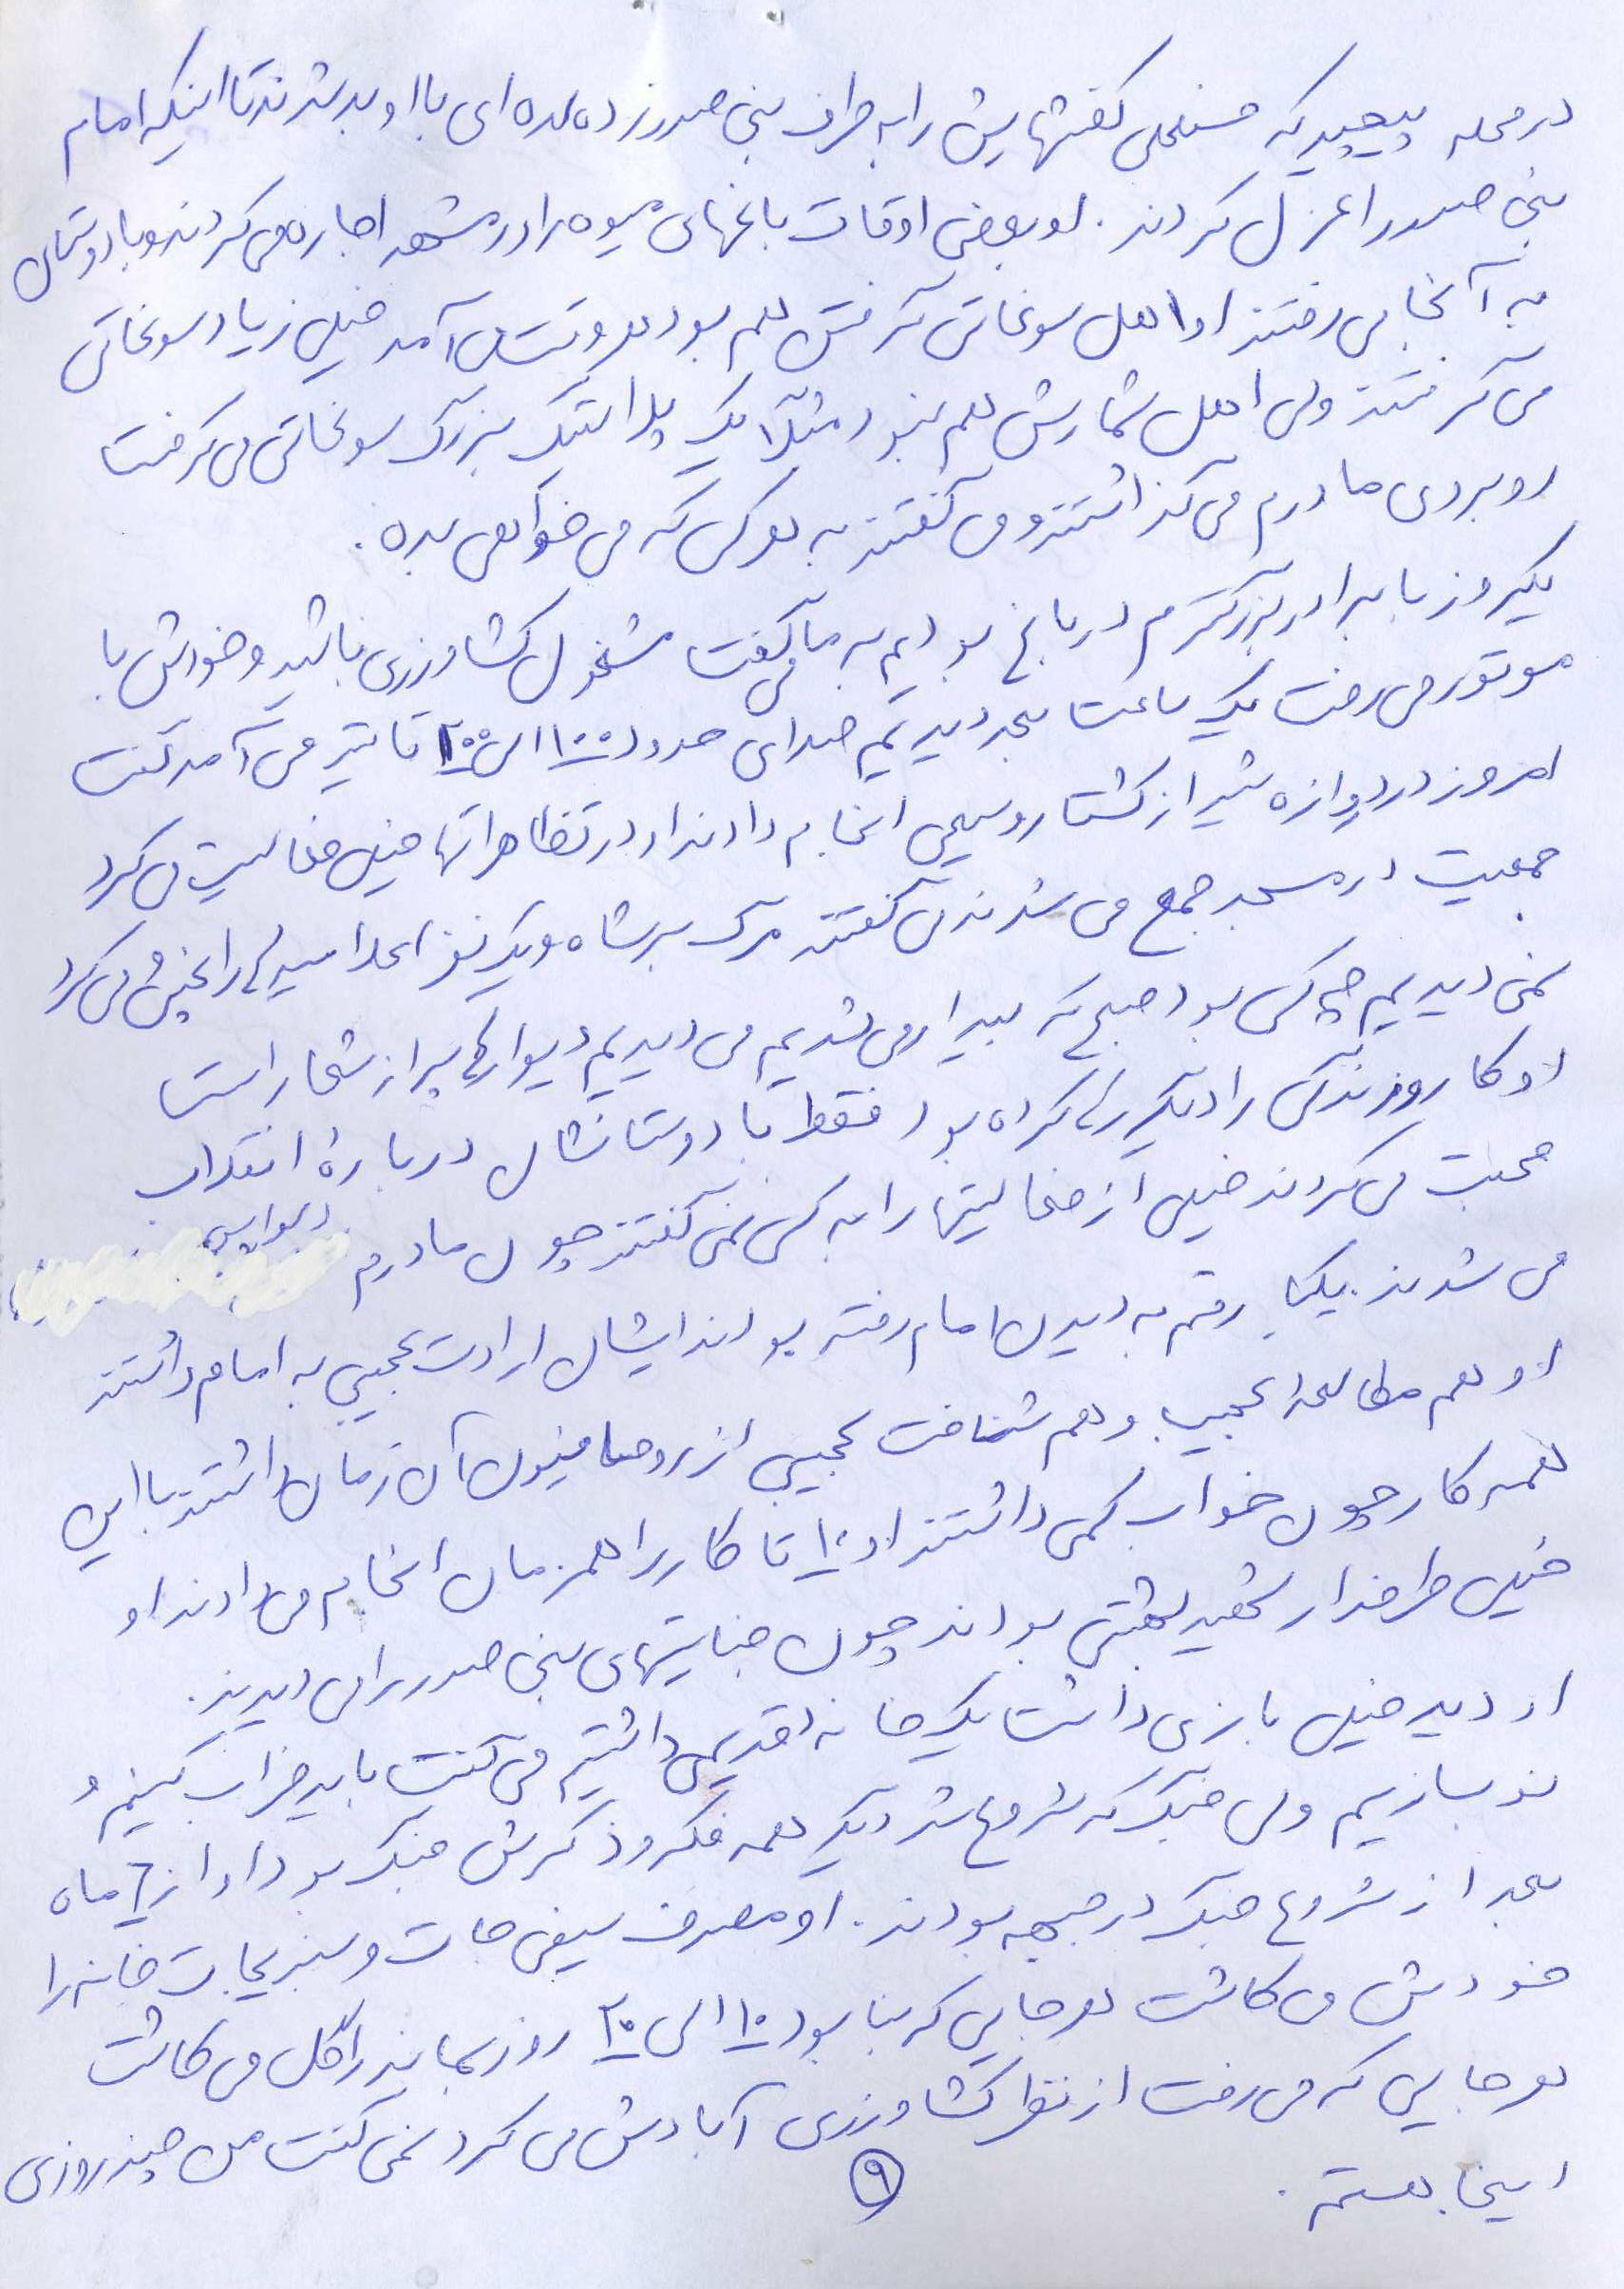 در محله پیچید که حسنعلی کفشهایش را به طرف بنی صدر زده عده ای با او بد شدند تا اینکه امام
بنی صدر را عزل کردند. او بعضی اوقات باغهای میوه را در مشهد اجاره می کردند و با دوستان
به آنجا می رفتند او اهل سوغاتی گرفتن هم بود هر وقت می آمد خیلی زیاد سوغاتی
می گرفتند ولی اهل شمارش هم نبود مثلاً یک پلاستیک بزرگ سوغاتی می گرفت
روبروی مادرم می گذاشتند و می گفتند به هر کس که می خواهی بده.
یکروز با برادر بزرگترم در باغ بودیم به ما می گفت مشغول کشاورزی باشید و خودش با
موتور می رفت یک ساعت بعد دیدیم صدای حدود ۱۰۰ الی ۲۰۰ تا تیر می آمد گفت
امروز در دروازه شیراز کشتار وسیعی انجام دادند او در تظاهراتها خیلی فعالیت می کرد
جمعیت در مسجد جمع می شدند می گفتند مرگ بر شاه و یک نفر اعلامیه ها را پخش می کرد
نمی دیدیم چه کسی بود صبح که بیدار می شدیم می دیدیم دیوارها پر از شعار است
او کار و زندگی را دیگر رها کرده بود فقط با دوستانشان درباره انقلاب
صحبت می کردند خیلی از فعالیتها را به کسی نمی گفتند چون مادرم دلواپس
می شدند. یکبار رقم به دیدن امام رفته بودند ایشان ارادت عجیبی به امام داشتند
او هم مطالعه عجیب و هم شناخت عجیبی از روحانیون آن زمان داشتند با این
همه کار چون خواب کمی داشتند او ۱۰ تا کار را همزمان انجام می دادند او
خیلی طرفدار شهید بهشتی بودند چون جنایتهای بنی صدر را می دیدند.
او دید خیلی بازی داشت یک خانه قدیمی داشتیم می گفت باید خراب کنیم و
نو بسازیم ولی جنگ که شروع شد دیگر همه فکر و ذکرش جنگ بود او از ۶ ماه
بعد از شروع جنگ در جبهه بودند. او مصرف صیفی جات و سبزیجات خانه را
خودش می کاشت هر جایی که بنا بود ۱۰ الی ۲۰ روز بماند را گل می کاشت
هر جایی که می رفت از نظر کشاورزی آبادش می کرد نمی گفت من چند روزی
اینجا هستم.
۹